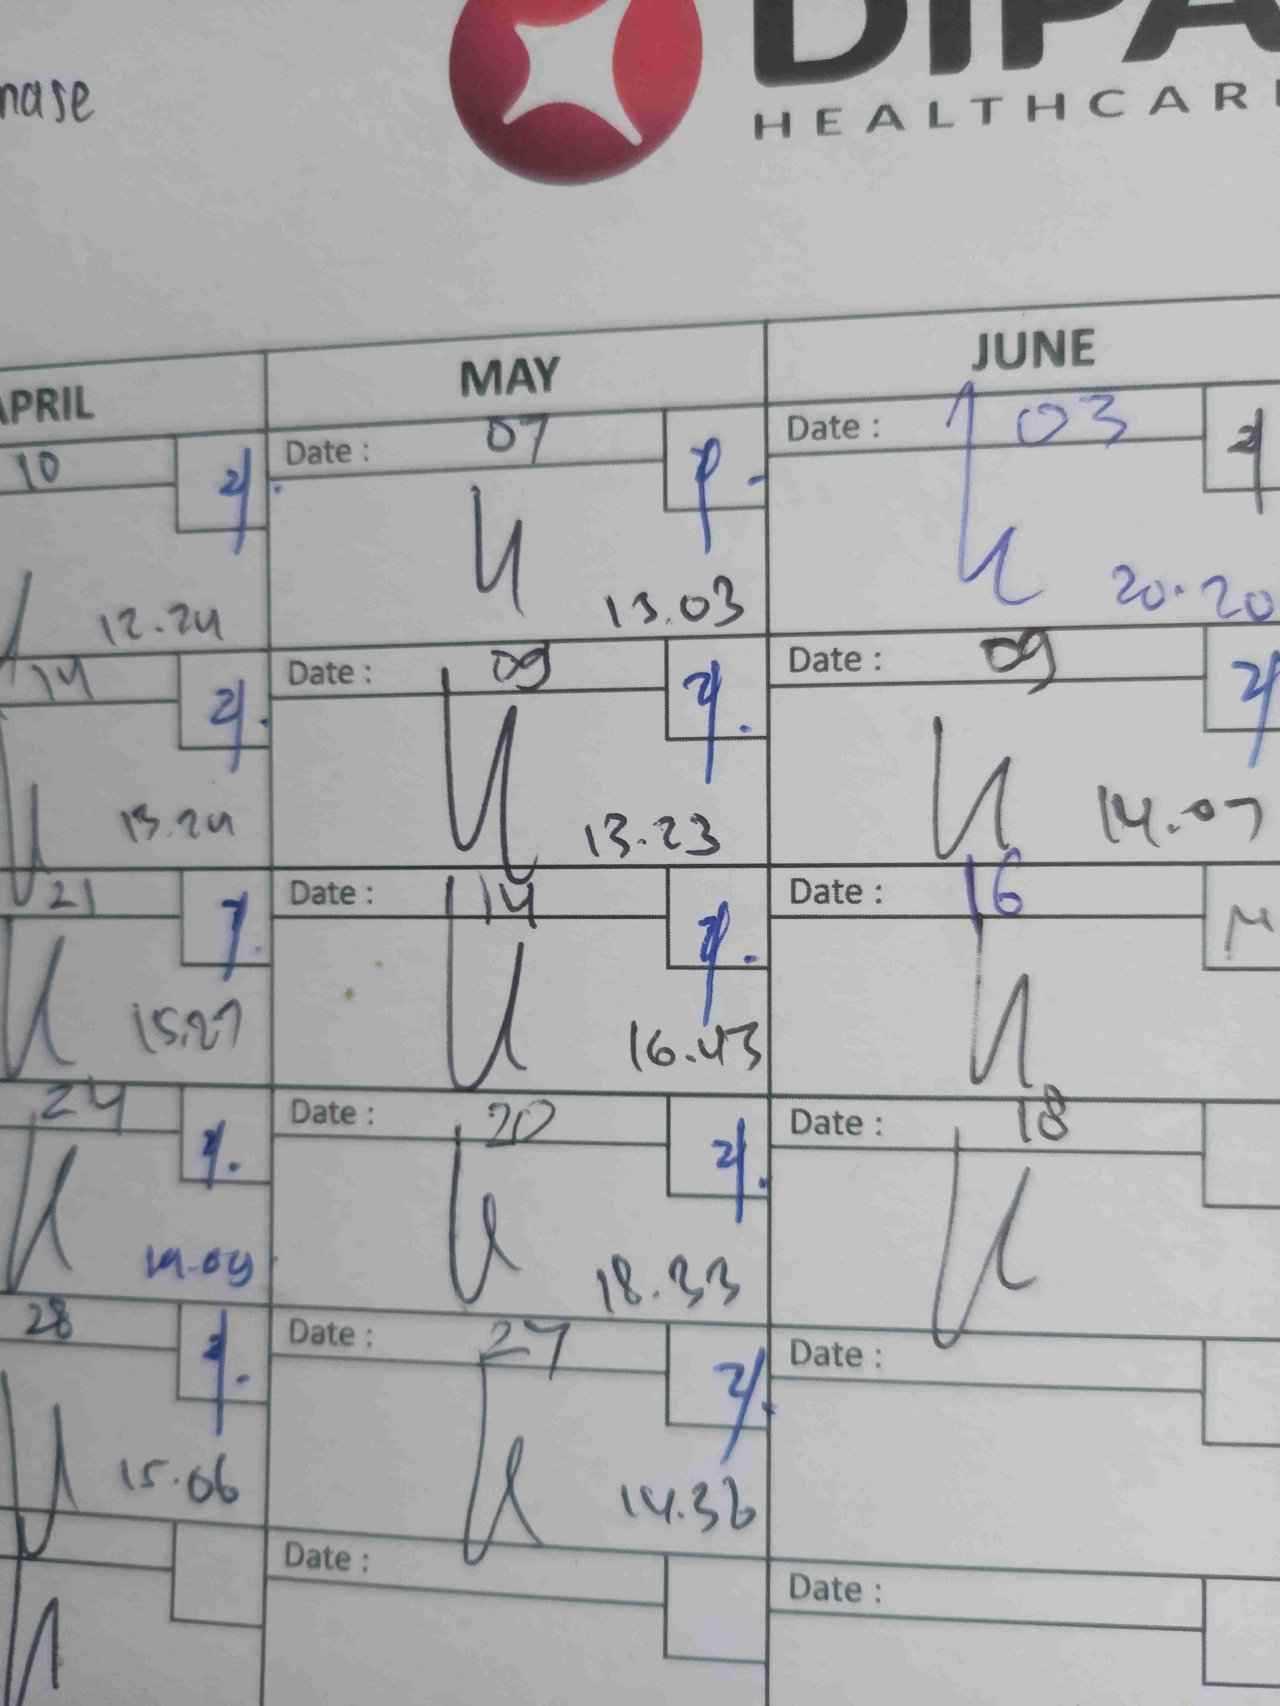 nase
DIPA
HEALTHCAR
APRIL
MAY
JUNE
10
Date : 07
Date : 03
12.24
13.03
20.20
14
Date : 09
Date : 09
13.24
13.23
14.07
21
Date : 14
Date : 16
15.27
16.43
24
Date : 20
Date : 18
14.09
18.33
28
Date : 27
Date :
15.06
14.36
Date :
Date :